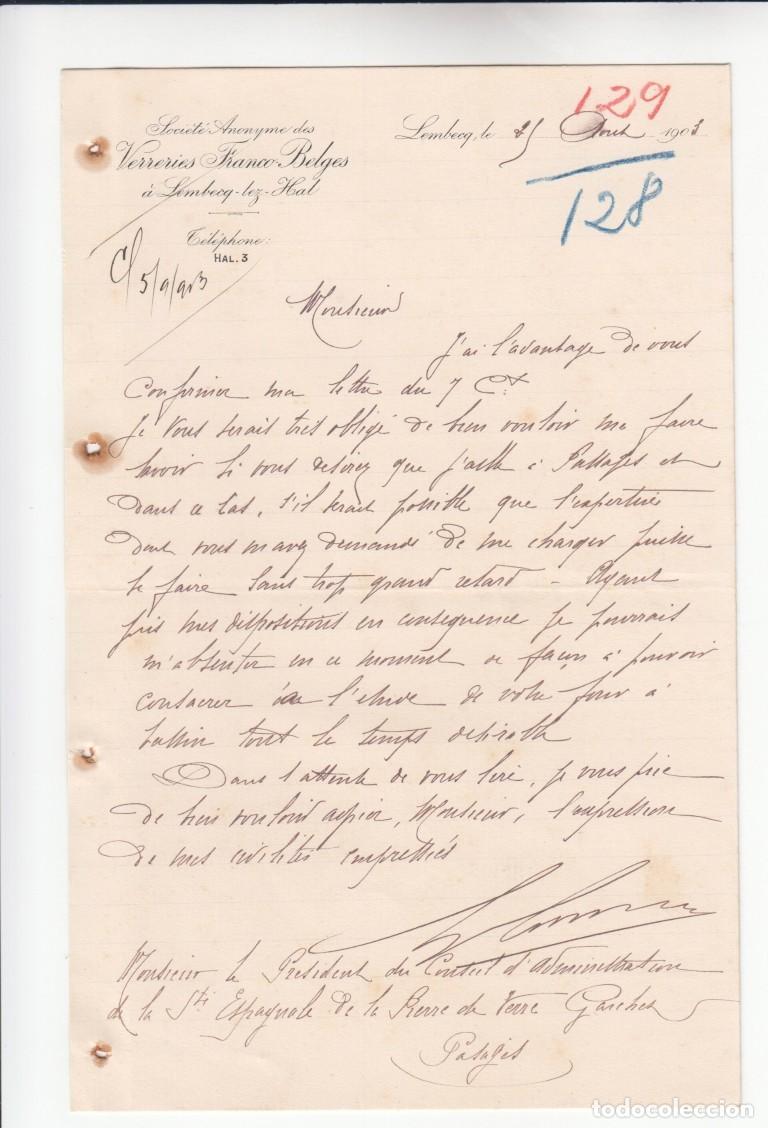 129
Société Anonyme des
Verreries Franco-Belges
à Lembecq-lez-Hal
Téléphone:
HAL. 3
Lembecq, le 25 Août 1903
128
C/ 5/9/903
Monsieur
J'ai l'avantage de vous
Confirmer ma lettre du 7 Ct.
Je vous serais très obligé de bien vouloir me faire
savoir si vous desirez que j'aille à Passages et
dans ce cas, s'il serait possible que l'expertise
dont vous m'avez demandé de me charger puisse
se faire sans trop grand retard - Ayant
pris mes dispositions en consequence je pourrais
m'absenter en ce moment de façon à pouvoir
consacrer à l'etude de votre four à
bassin tout le temps desirable
Dans l'attente de vous lire, je vous prie
de bien vouloir agréer, Monsieur, l'expression
de mes civilités empressées
Monsieur le President du Conseil d'administration
de la Sté Espagnole de la Pierre de Verre Garchey
Pasages
todocoleccion